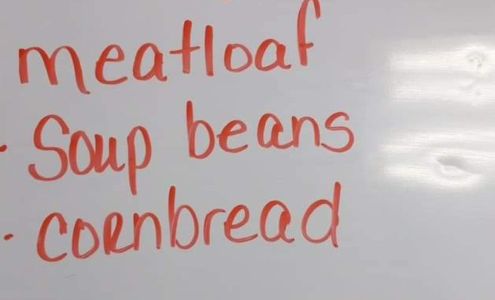 meatloaf
· Soup beans
· cornbread